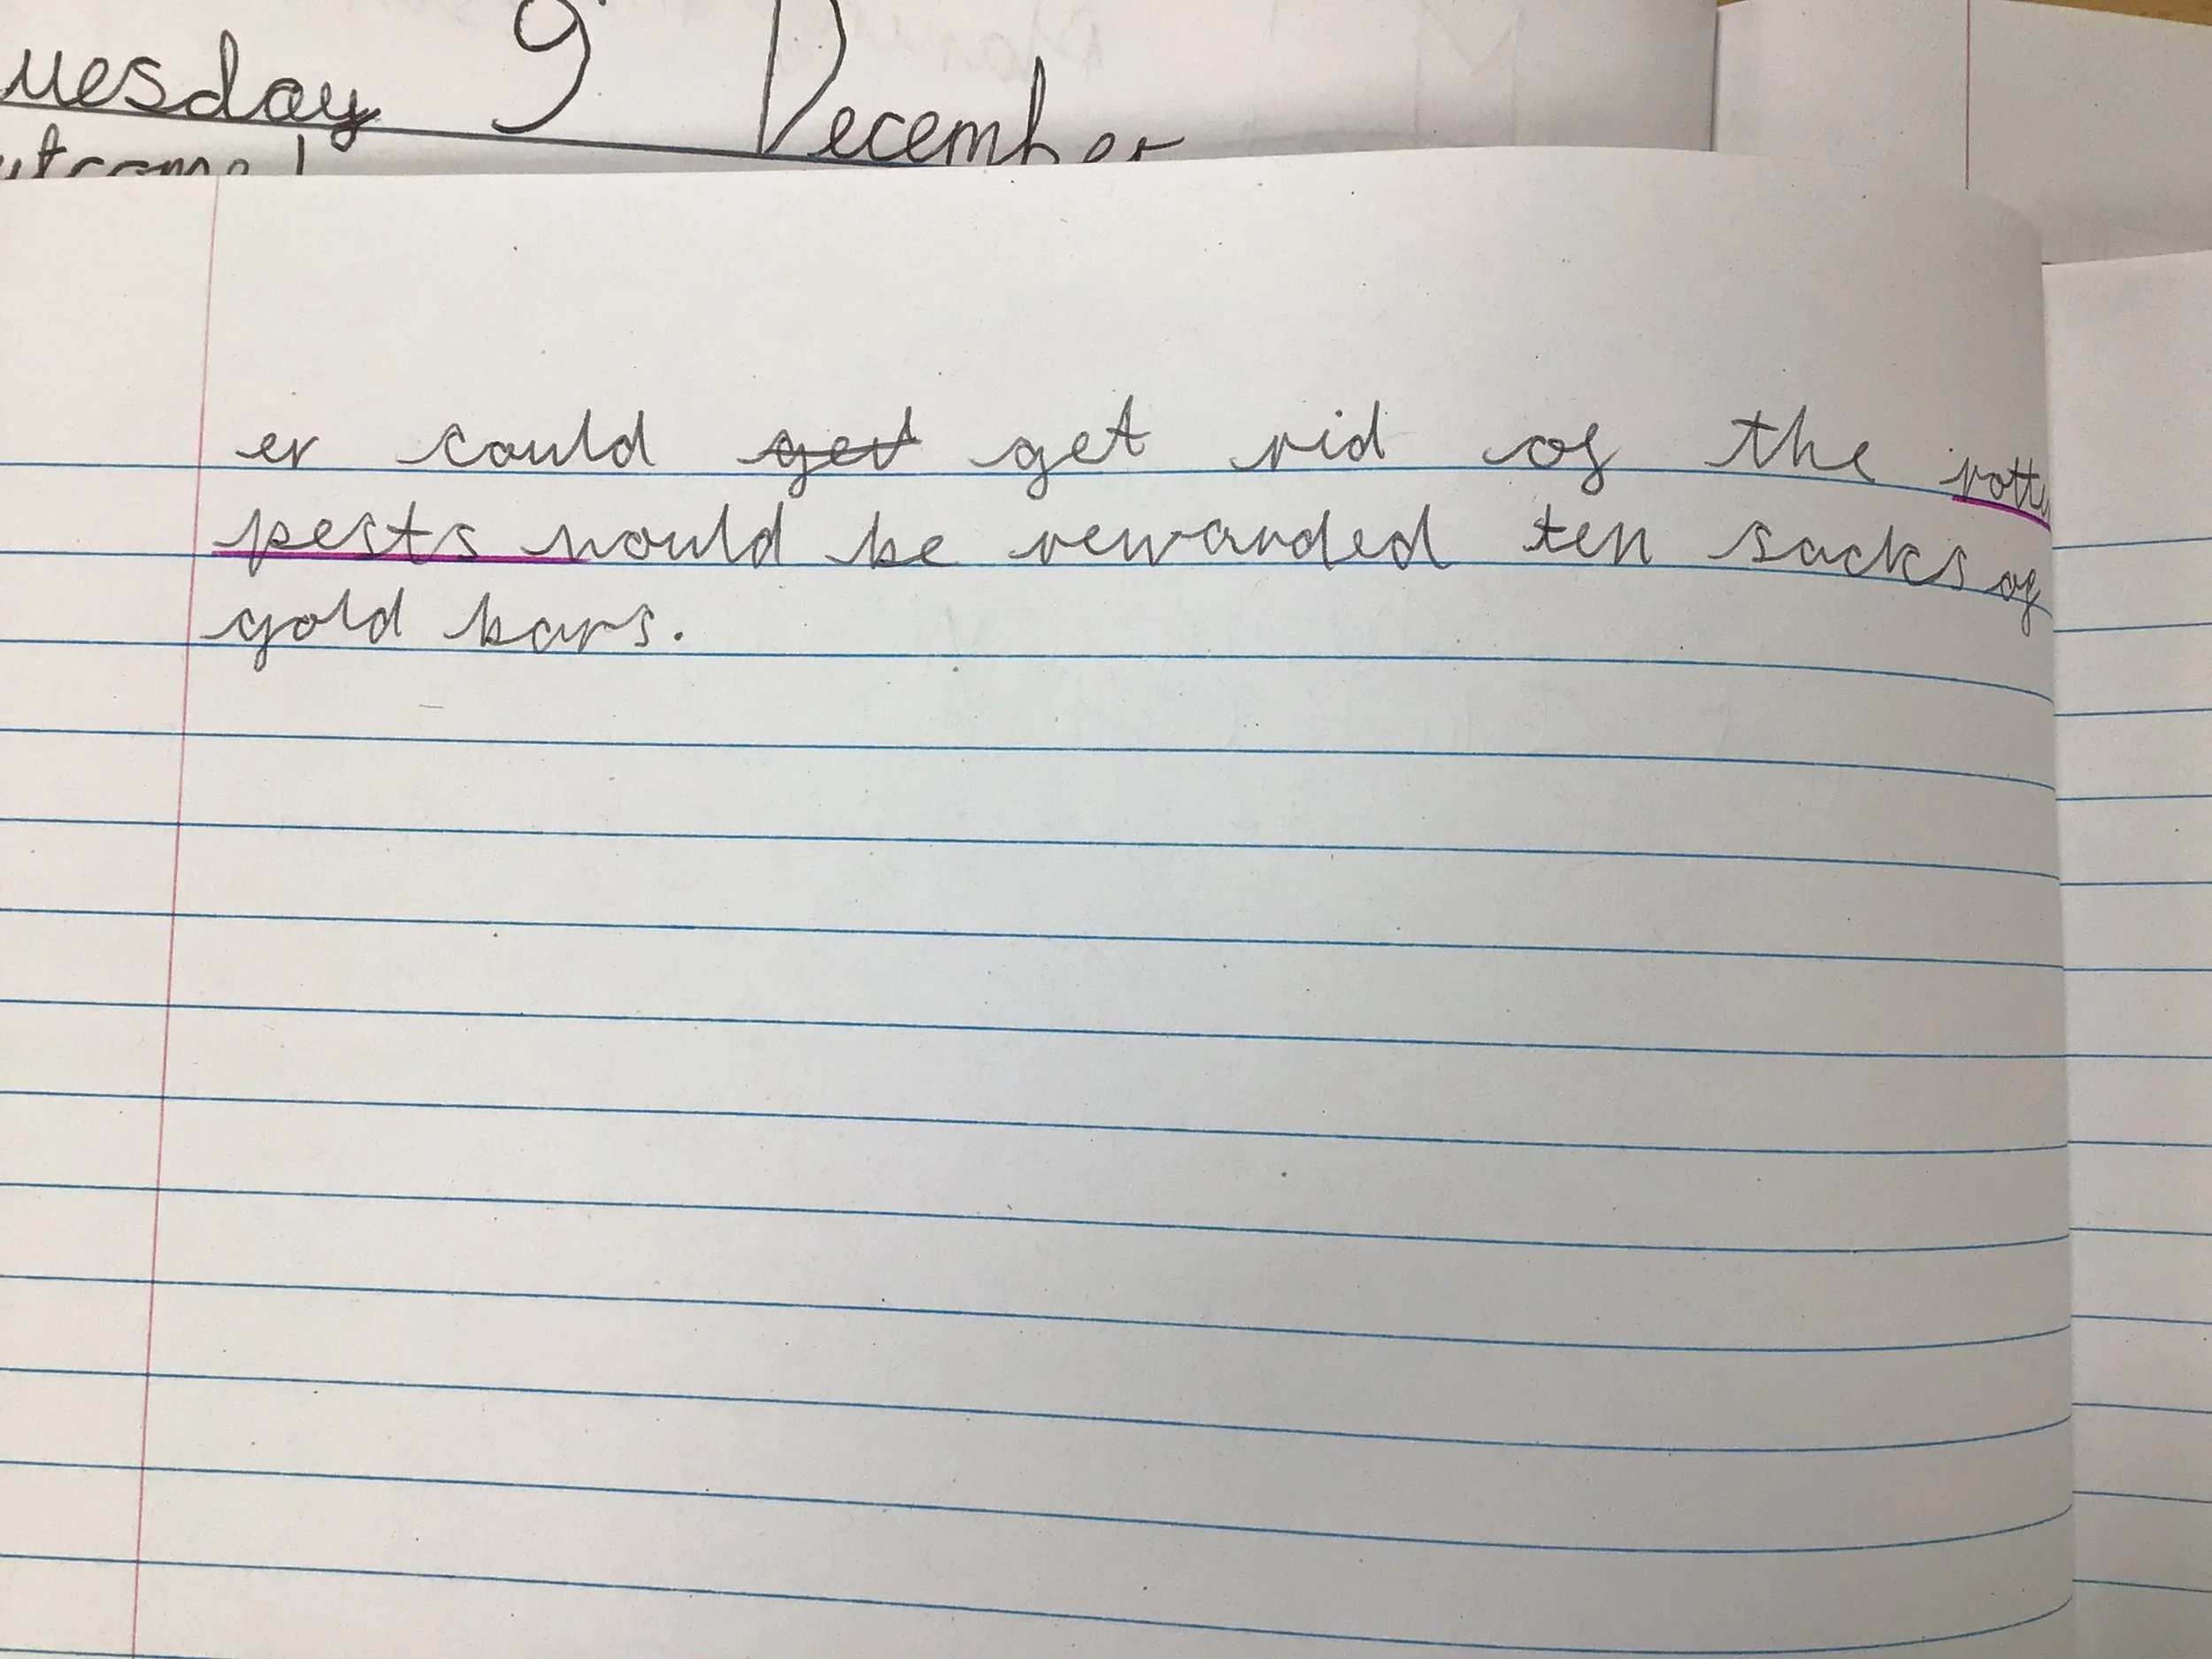 uesday 9 December
er could get get rid of the rotte
pests would be rewarded ten sacks of
gold bars.